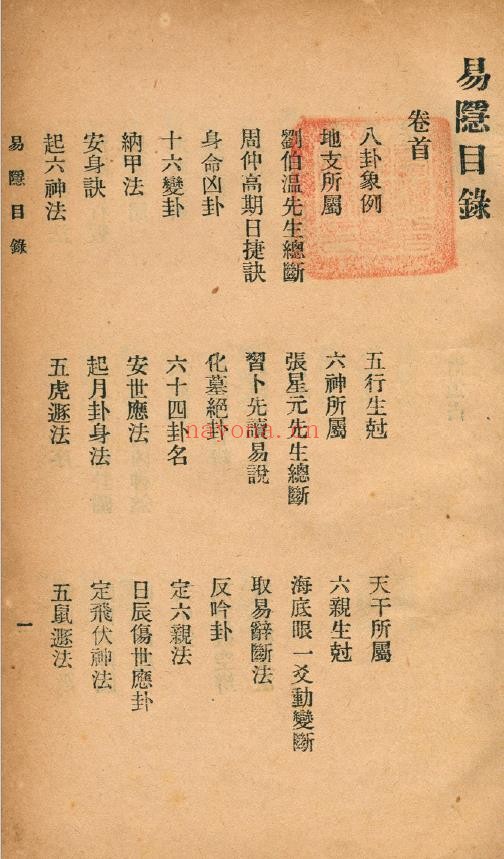 易隱目錄
卷首
八卦象例 五行生尅 天干所屬
地支所屬 六神所屬 六親生尅
劉伯温先生總斷 張星元先生總斷 海底眼一爻動變斷
周仲高期日捷訣 習卜先讀易說 取易辭斷法
身命凶卦 化墓絕卦 反吟卦
十六變卦 六十四卦名 定六親法
納甲法 安世應法 日辰傷世應卦
安身訣 起月卦身法 定飛伏神法
起六神法 五虎遯法 五鼠遯法
易隱目錄 一